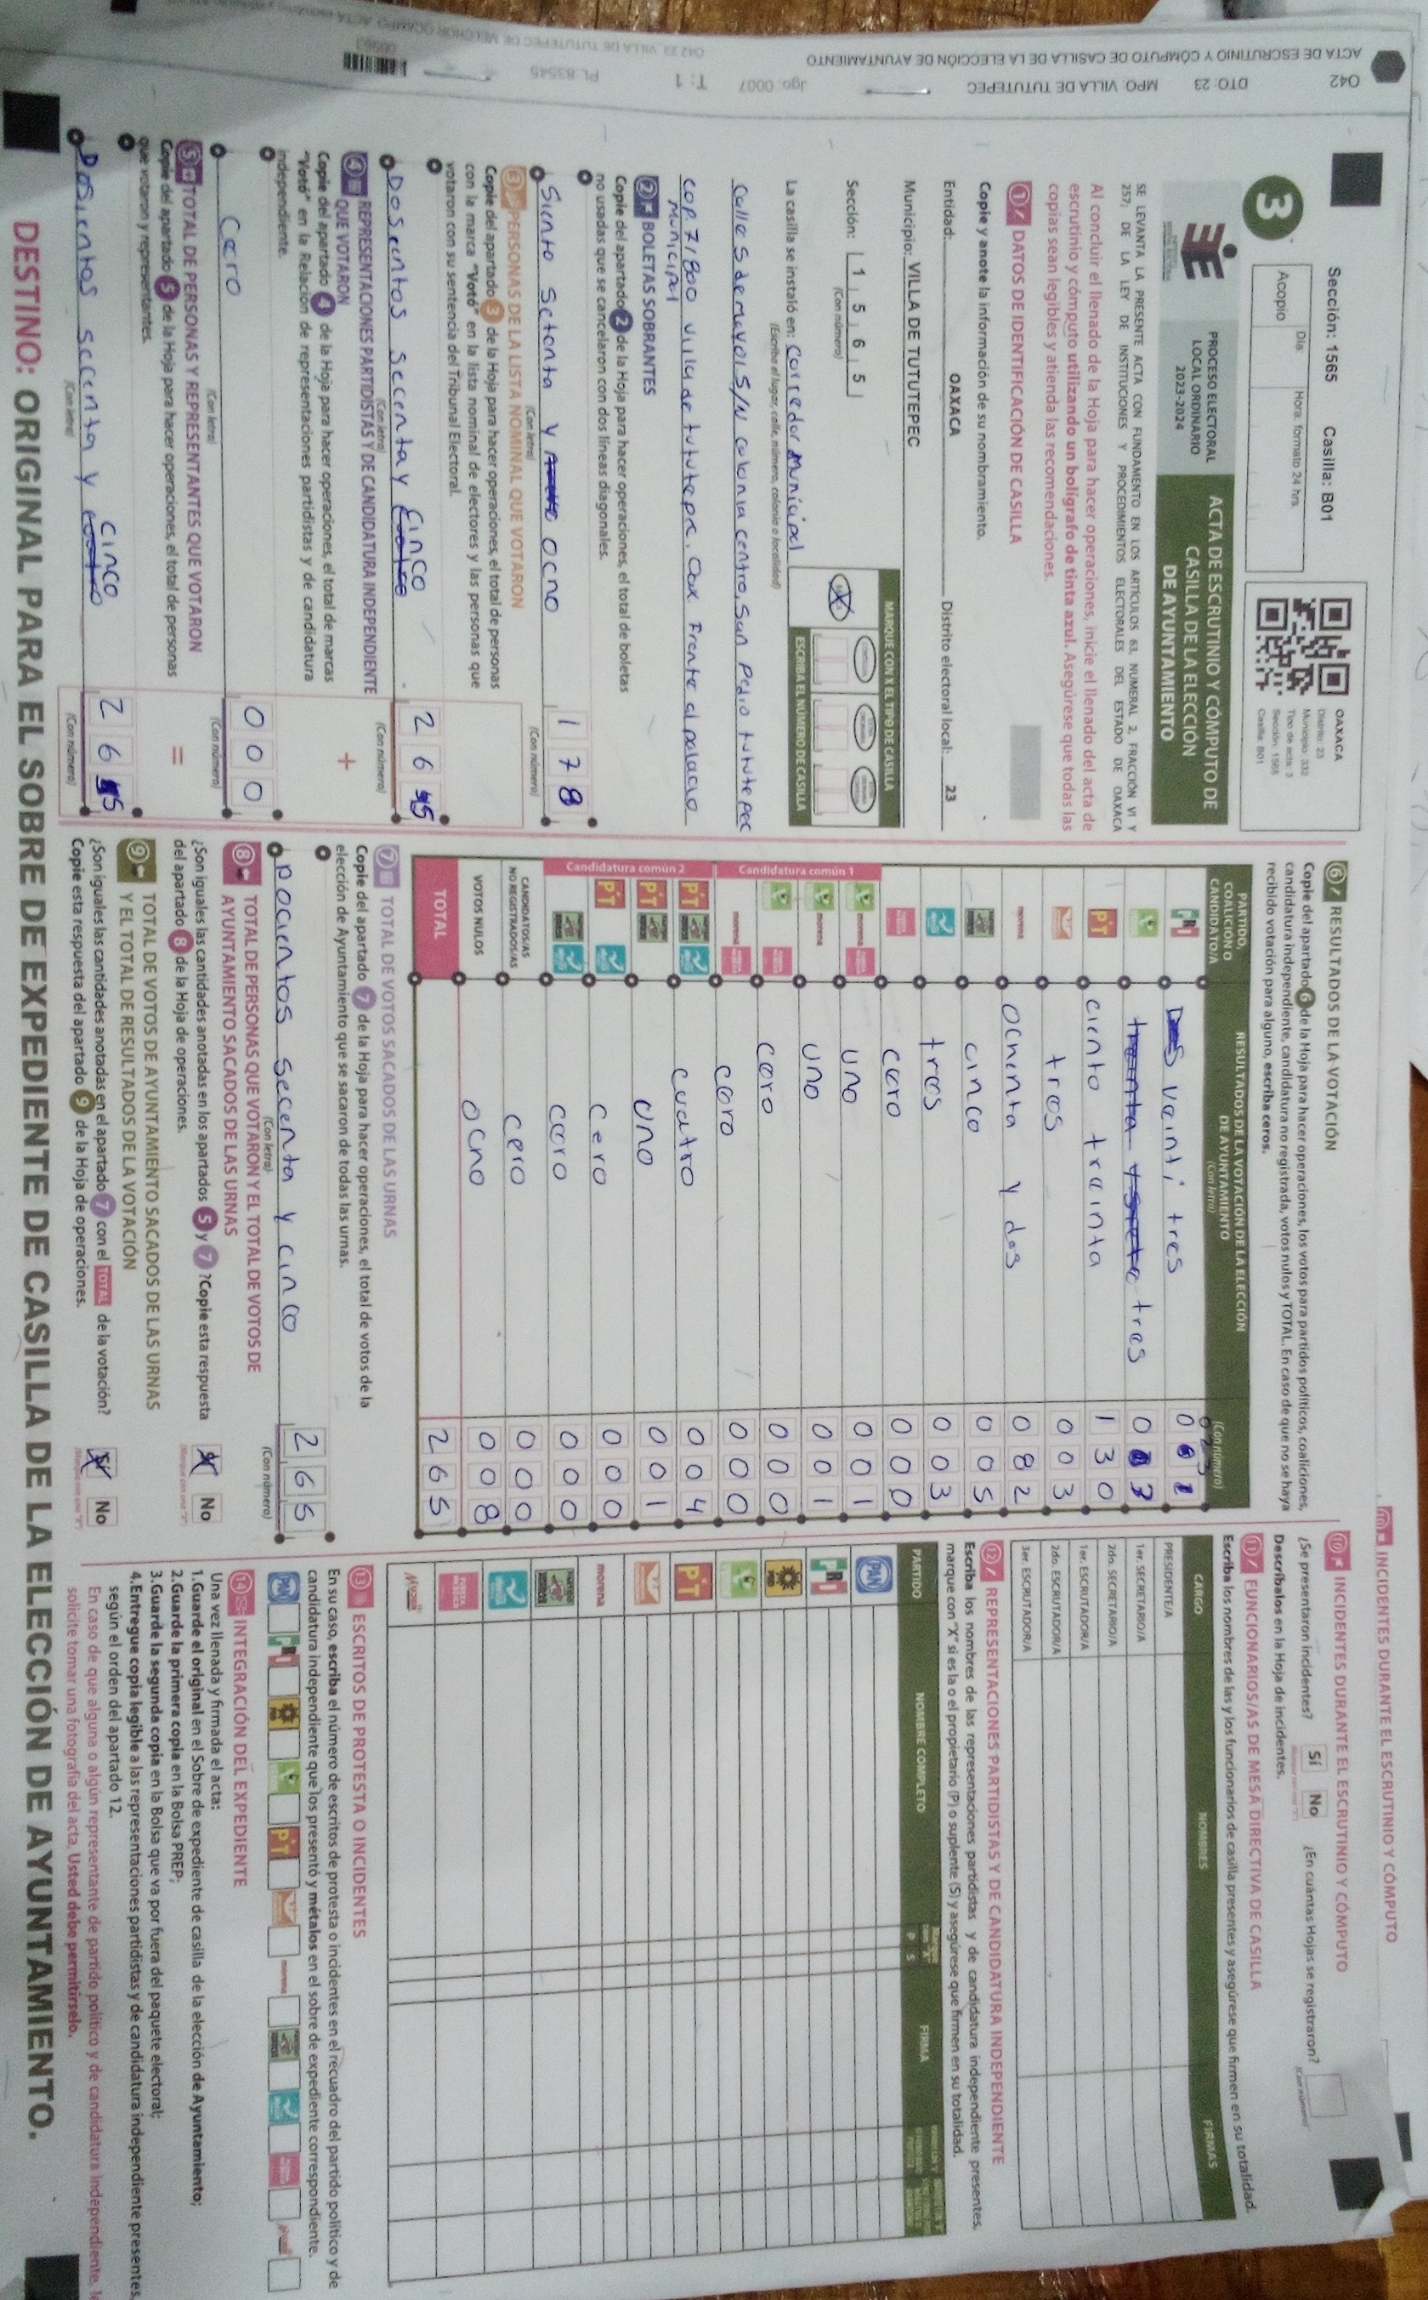 Sección: 1565 Casilla: B01
3
Día: Hora: formato 24 hrs.
Acopio
OAXACA
Distrito: 23
Municipio: 332
Tipo de acta: 3
Sección: 1565
Casilla: B01
PROCESO ELECTORAL
LOCAL ORDINARIO
2023-2024
ACTA DE ESCRUTINIO Y CÓMPUTO DE
CASILLA DE LA ELECCIÓN
DE AYUNTAMIENTO
SE LEVANTA LA PRESENTE ACTA CON FUNDAMENTO EN LOS ARTÍCULOS 63, NUMERAL 2, FRACCIÓN VI Y
257, DE LA LEY DE INSTITUCIONES Y PROCEDIMIENTOS ELECTORALES DEL ESTADO DE OAXACA
Al concluir el llenado de la Hoja para hacer operaciones, inicie el llenado del acta de
escrutinio y cómputo utilizando un bolígrafo de tinta azul. Asegúrese que todas las
copias sean legibles y atienda las recomendaciones.
1 DATOS DE IDENTIFICACIÓN DE CASILLA
Copie y anote la información de su nombramiento.
Entidad: OAXACA Distrito electoral local: 23
Municipio: VILLA DE TUTUTEPEC
Sección: 1 5 6 5
(Con número)
MARQUE CON X EL TIPO DE CASILLA
ESCRIBA EL NÚMERO DE CASILLA
La casilla se instaló en: Corredor municipal
(Escriba el lugar, calle, número, colonia o localidad)
Calle 5 de mayo, S/N colonia centro, San Pedro tututepec
cop. 71800 villa de tututepec, Oax Frente al palacio
Municipal
2 BOLETAS SOBRANTES
Copie del apartado 2 de la Hoja para hacer operaciones, el total de boletas
no usadas que se cancelaron con dos líneas diagonales.
Siento setenta y ocho 1 7 8
(Con letra) (Con número)
3 PERSONAS DE LA LISTA NOMINAL QUE VOTARON
Copie del apartado 3 de la Hoja para hacer operaciones, el total de personas
con la marca "Votó" en la lista nominal de electores y las personas que
votaron con su sentencia del Tribunal Electoral.
Dosientos secenta y cinco 2 6 5
(Con letra) (Con número)
4 REPRESENTACIONES PARTIDISTAS Y DE CANDIDATURA INDEPENDIENTE
QUE VOTARON +
Copie del apartado 4 de la Hoja para hacer operaciones, el total de marcas
"Votó" en la Relación de representaciones partidistas y de candidatura
independiente.
Cero 0 0 0
(Con letra) (Con número)
5 TOTAL DE PERSONAS Y REPRESENTANTES QUE VOTARON =
Copie del apartado 5 de la Hoja para hacer operaciones, el total de personas
que votaron y representantes.
Dosientos secenta y cinco 2 6 5
(Con letra) (Con número)
6 RESULTADOS DE LA VOTACIÓN
Copie del apartado 6 de la Hoja para hacer operaciones, los votos para partidos políticos, coaliciones,
candidatura independiente, candidatura no registrada, votos nulos y TOTAL. En caso de que no se haya
recibido votación para alguno, escriba ceros.
PARTIDO, COALICIÓN O CANDIDATO/A RESULTADOS DE LA VOTACIÓN DE LA ELECCIÓN DE AYUNTAMIENTO (Con letra) (Con número)
PRI veinti tres 023
tres 0 3
PT ciento treinta 1 3 0
tres 0 0 3
morena ochenta y dos 0 8 2
cinco 0 0 5
tres 0 0 3
cero 0 0 0
Candidatura común 1
morena uno 0 0 1
morena uno 0 0 1
cero 0 0 0
morena cero 0 0 0
Candidatura común 2
PT cuatro 0 0 4
PT uno 0 0 1
PT cero 0 0 0
cero 0 0 0
CANDIDATOS/AS NO REGISTRADOS/AS cero 0 0 0
VOTOS NULOS ocho 0 0 8
TOTAL 2 6 5
7 TOTAL DE VOTOS SACADOS DE LAS URNAS
Copie del apartado 7 de la Hoja para hacer operaciones, el total de votos de la
elección de Ayuntamiento que se sacaron de todas las urnas.
Docientos secenta y cinco 2 6 5
(Con letra) (Con número)
8 TOTAL DE PERSONAS QUE VOTARON Y EL TOTAL DE VOTOS DE
AYUNTAMIENTO SACADOS DE LAS URNAS
¿Son iguales las cantidades anotadas en los apartados 5 y 7 ? Copie esta respuesta
del apartado 8 de la Hoja de operaciones. Sí No
9 TOTAL DE VOTOS DE AYUNTAMIENTO SACADOS DE LAS URNAS
Y EL TOTAL DE RESULTADOS DE LA VOTACIÓN
¿Son iguales las cantidades anotadas en el apartado 7 con el TOTAL de la votación?
Copie esta respuesta del apartado 9 de la Hoja de operaciones. Sí No
INCIDENTES DURANTE EL ESCRUTINIO Y CÓMPUTO
10 INCIDENTES DURANTE EL ESCRUTINIO Y CÓMPUTO
¿Se presentaron incidentes? Sí No ¿En cuántas Hojas se registraron?
(Con número)
Descríbalos en la Hoja de incidentes.
11 FUNCIONARIOS/AS DE MESA DIRECTIVA DE CASILLA
Escriba los nombres de las y los funcionarios de casilla presentes y asegúrese que firmen en su totalidad.
CARGO NOMBRES FIRMAS
PRESIDENTE/A
1er. SECRETARIO/A
2do. SECRETARIO/A
1er. ESCRUTADOR/A
2do. ESCRUTADOR/A
3er. ESCRUTADOR/A
12 REPRESENTACIONES PARTIDISTAS Y DE CANDIDATURA INDEPENDIENTE
Escriba los nombres de las representaciones partidistas y de candidatura independiente presentes,
marque con "X" si es la o el propietario (P) o suplente (S) y asegúrese que firmen en su totalidad.
PARTIDO NOMBRE COMPLETO P S FIRMA
PAN
PRI
PRD
PT
morena
13 ESCRITOS DE PROTESTA O INCIDENTES
En su caso, escriba el número de escritos de protesta o incidentes en el recuadro del partido político y de
candidatura independiente que los presentó y métalos en el sobre de expediente correspondiente.
PAN PRI PRD PT morena
14 INTEGRACIÓN DEL EXPEDIENTE
Una vez llenada y firmada el acta:
1.Guarde el original en el Sobre de expediente de casilla de la elección de Ayuntamiento;
2.Guarde la primera copia en la Bolsa PREP;
3.Guarde la segunda copia en la Bolsa que va por fuera del paquete electoral;
4.Entregue copia legible a las representaciones partidistas y de candidatura independiente presentes
según el orden del apartado 12.
En caso de que alguna o algún representante de partido político y de candidatura independiente, l
solicite tomar una fotografía del acta, Usted debe permitírselo.
DESTINO: ORIGINAL PARA EL SOBRE DE EXPEDIENTE DE CASILLA DE LA ELECCIÓN DE AYUNTAMIENTO.
042 DTO: 23 MPO: VILLA DE TUTUTEPEC Jgo: 0007 T: 1 PL 83545
ACTA DE ESCRUTINIO Y CÓMPUTO DE CASILLA DE LA ELECCIÓN DE AYUNTAMIENTO
042 23 VILLA DE TUTUTEPEC DE MELCHOR OCAMPO